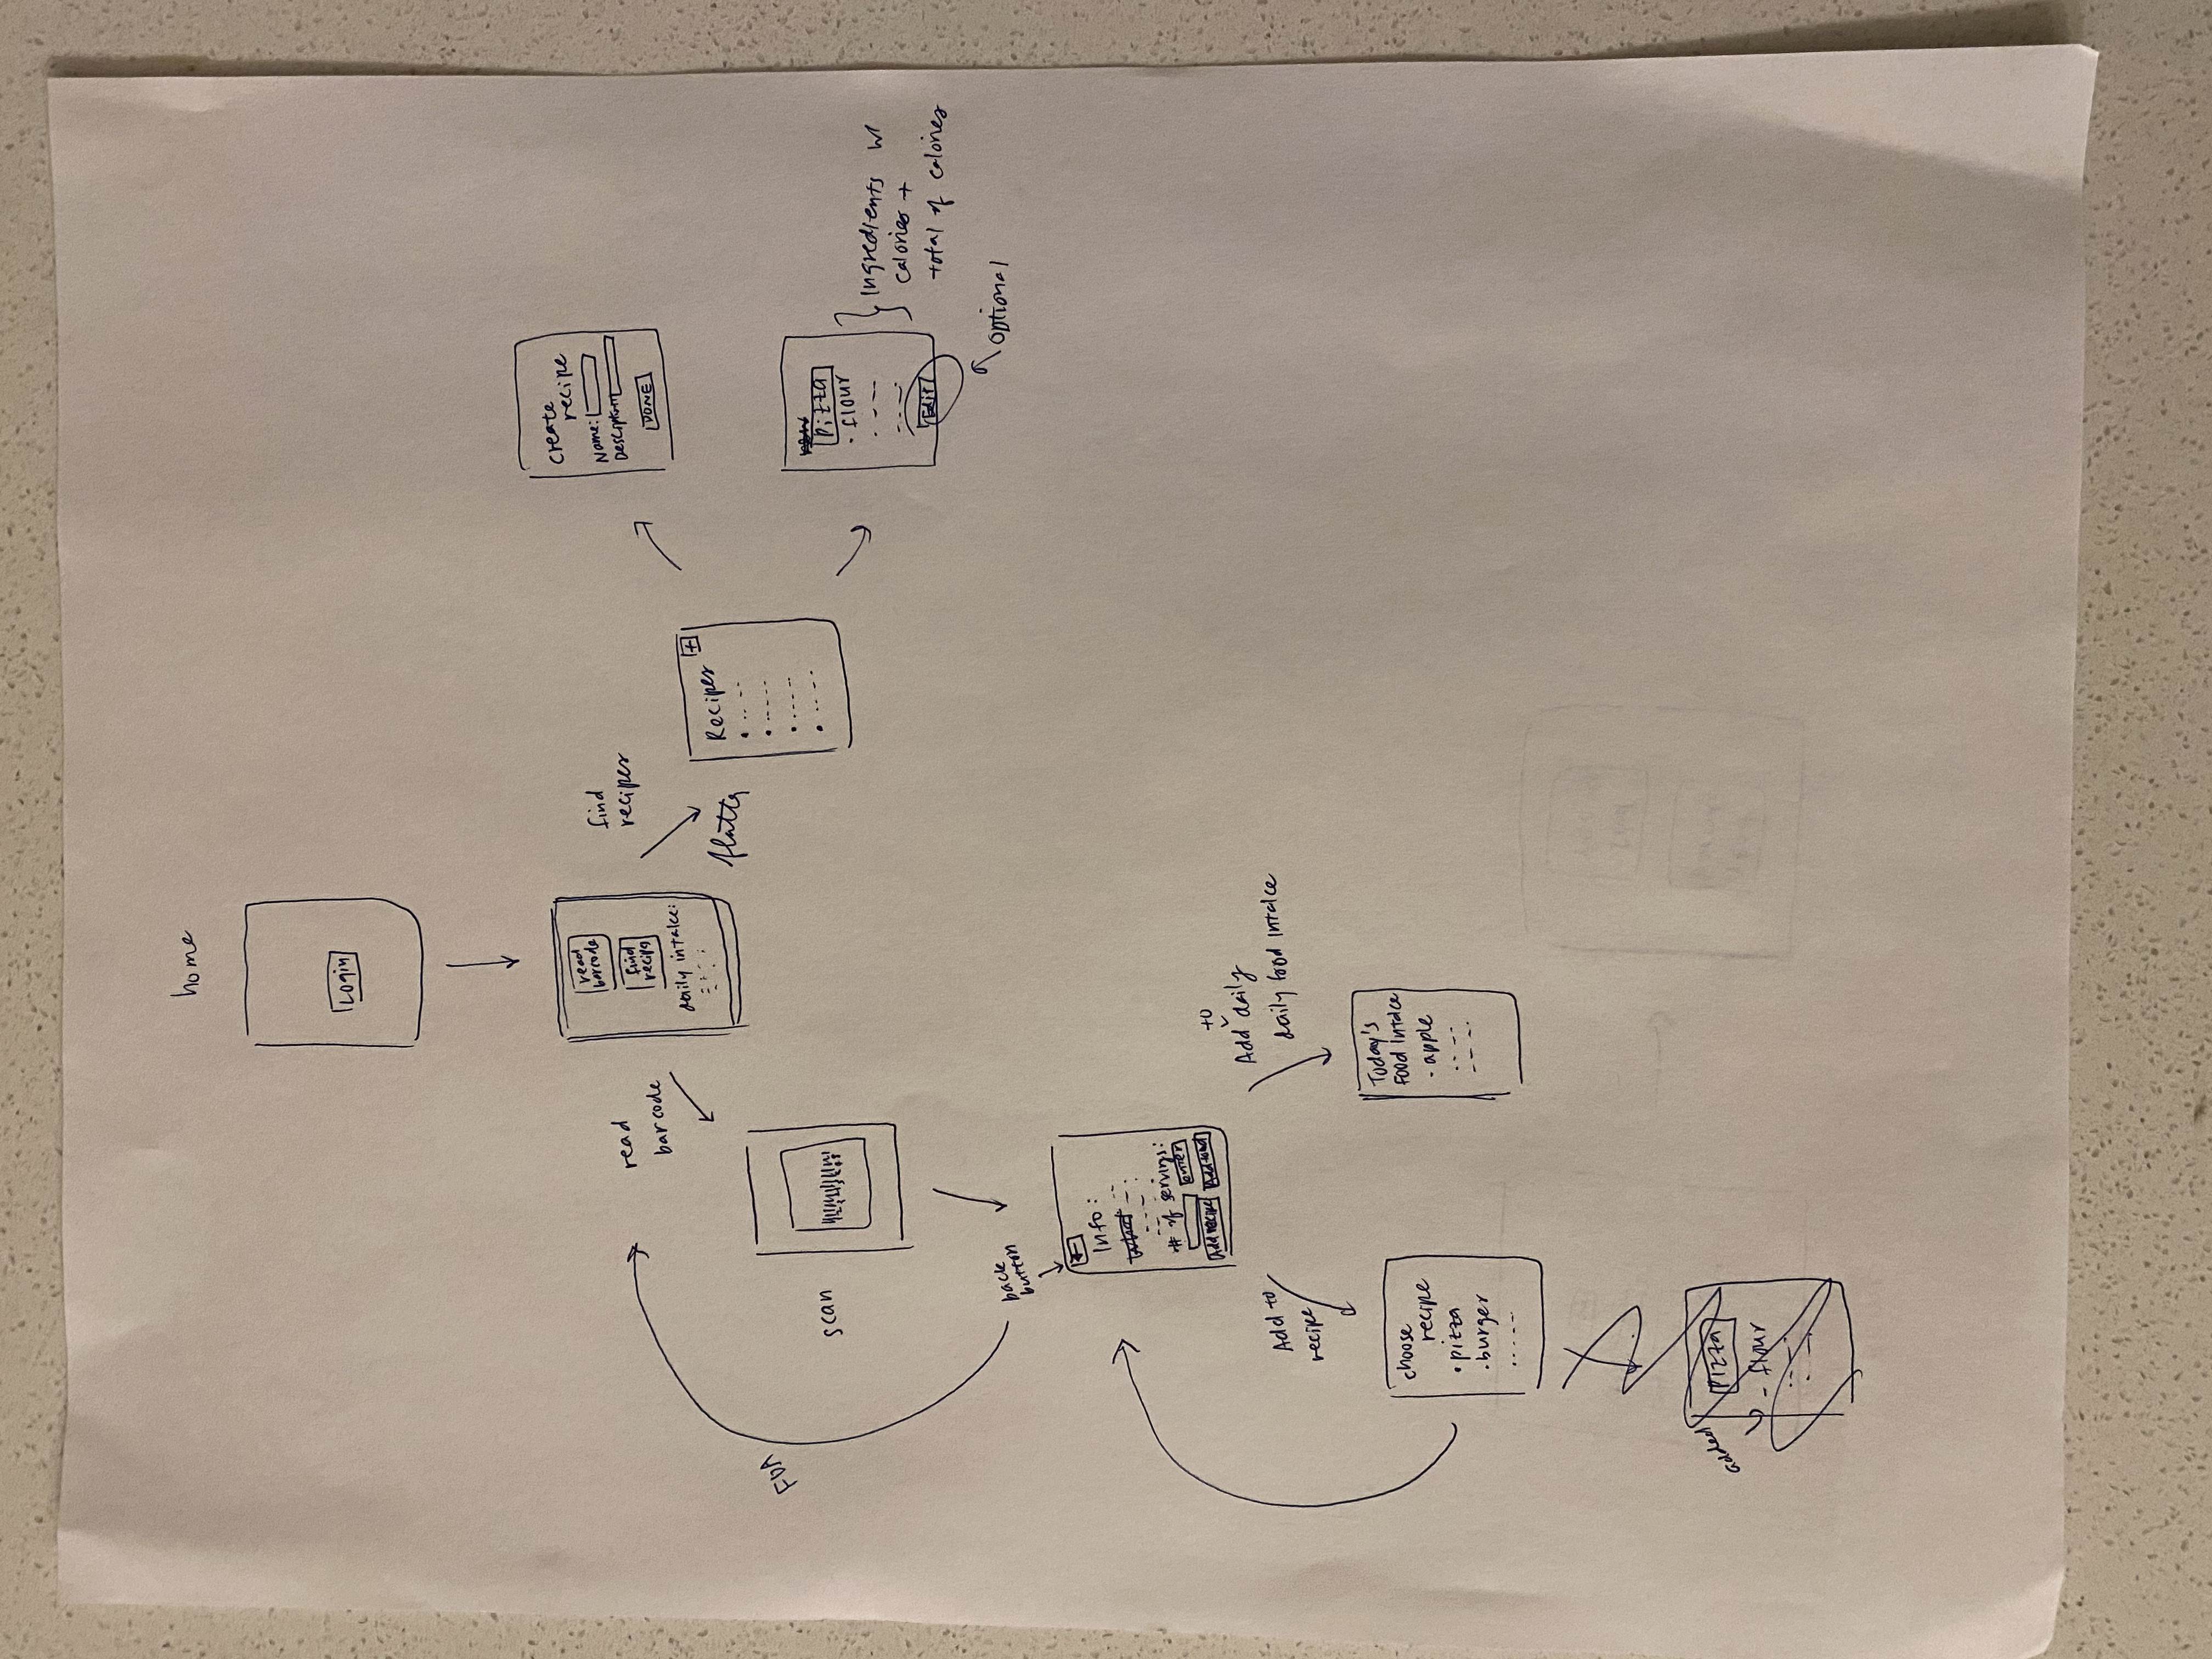 home
Login
read
barcode
find
recips
daily intake:
read
barcode
find
recipes
flatter
FDA
scan
Recipes
+
create
recipe
Name:
Desciption
DONE
Pizza
- flour
Edit
Ingredients w/
calories +
total of calories
optional
back
button
←
Info:
what
# of servings:
enter
Add recipe
Add food
Add to
recipe
to
Add daily
daily food intake
choose
recipe
• pizza
• burger
Today's
Food Intake
- apple
added
Pizza
- flour